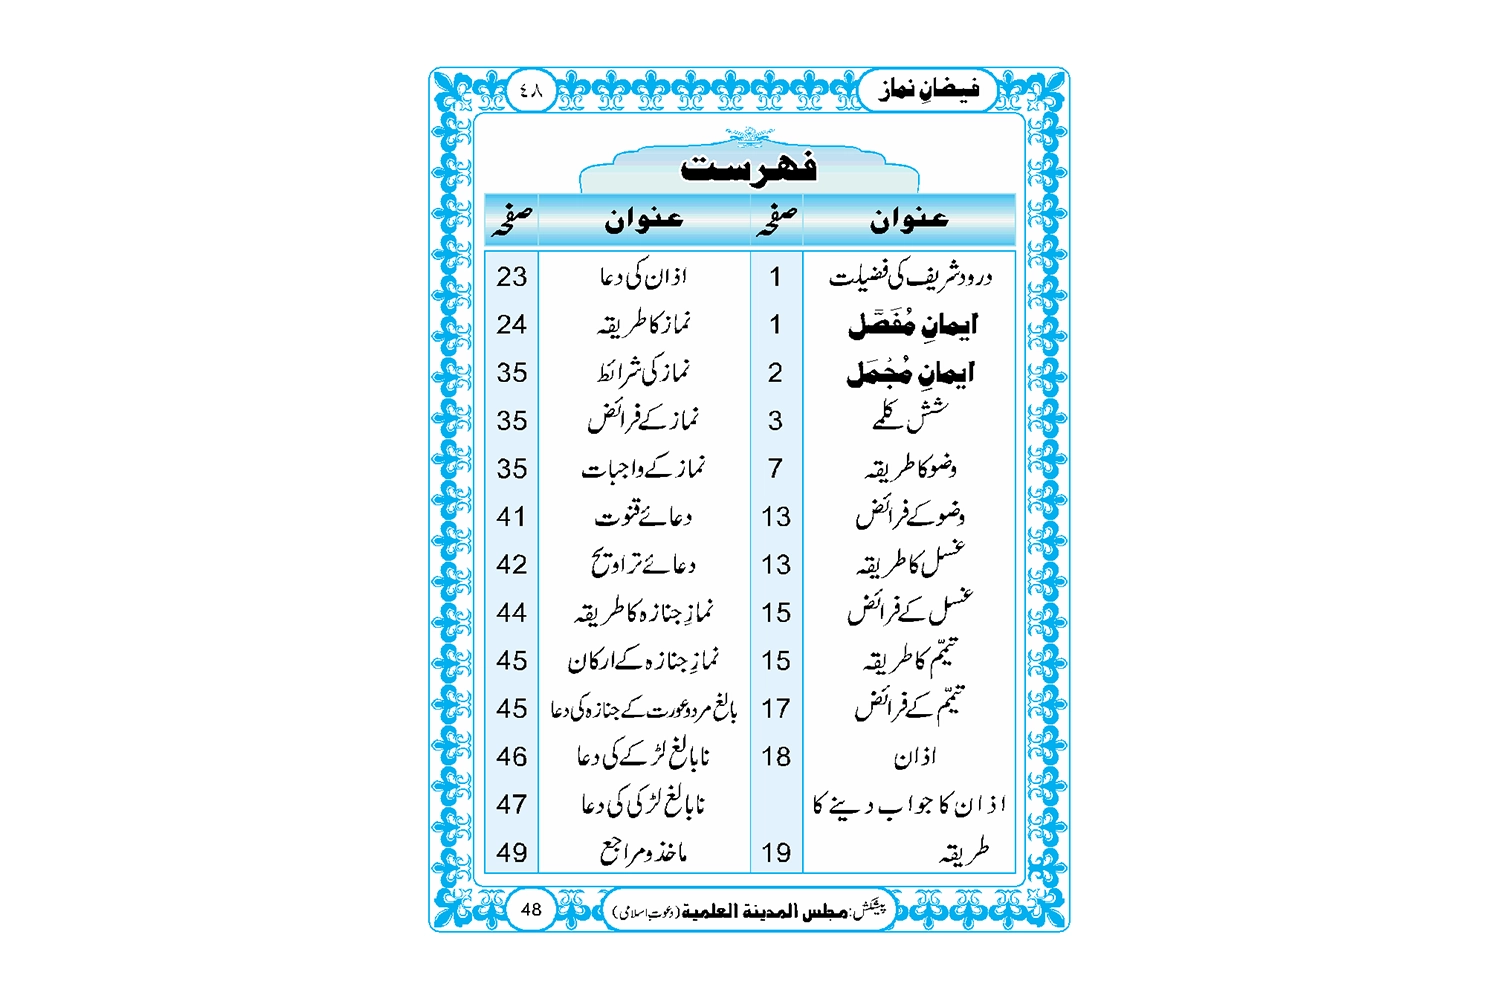 فیضانِ نماز ٤٨
فہرست
عنوان صفحہ عنوان صفحہ
درود شریف کی فضیلت 1 اذان کی دعا 23
ایمانِ مُفَصَّل 1 نماز کا طریقہ 24
ایمانِ مُجْمَل 2 نماز کی شرائط 35
شش کلمے 3 نماز کے فرائض 35
وضو کا طریقہ 7 نماز کے واجبات 35
وضو کے فرائض 13 دعائے قنوت 41
غسل کا طریقہ 13 دعائے تراویح 42
غسل کے فرائض 15 نمازِ جنازہ کا طریقہ 44
تیمّم کا طریقہ 15 نمازِ جنازہ کے ارکان 45
تیمّم کے فرائض 17 بالغ مرد و عورت کے جنازہ کی دعا 45
اذان 18 نابالغ لڑکے کی دعا 46
اذان کا جواب دینے کا نابالغ لڑکی کی دعا 47
طریقہ 19 ماخذ و مراجع 49
پیشکش: مجلس المدینۃ العلمیۃ (دعوتِ اسلامی) 48